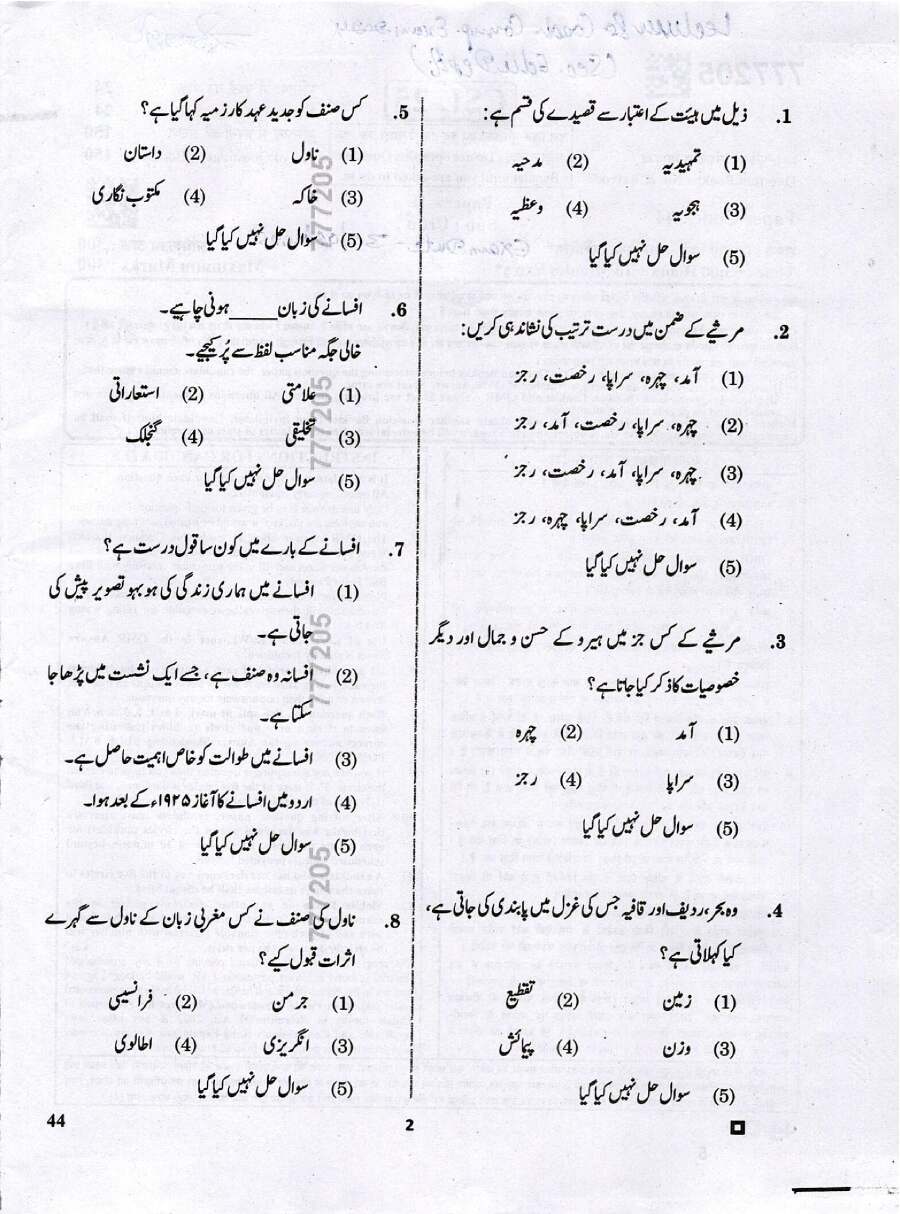 1. ذیل میں ہیئت کے اعتبار سے قصیدے کی قسم ہے:
(1) تمہیدیہ (2) مدحیہ
(3) ہجویہ (4) وعظیہ
(5) سوال حل نہیں کیا گیا
2. مرثیے کے ضمن میں درست ترتیب کی نشاندہی کریں:
(1) آمد، چہرہ، سراپا، رخصت، رجز
(2) چہرہ، سراپا، رخصت، آمد، رجز
(3) چہرہ، سراپا، آمد، رخصت، رجز
(4) آمد، رخصت، سراپا، چہرہ، رجز
(5) سوال حل نہیں کیا گیا
3. مرثیے کے کس جز میں ہیرو کے حسن و جمال اور دیگر
خصوصیات کا ذکر کیا جاتا ہے؟
(1) آمد (2) چہرہ
(3) سراپا (4) رجز
(5) سوال حل نہیں کیا گیا
4. وہ بحر، ردیف اور قافیہ جس کی غزل میں پابندی کی جاتی ہے،
کیا کہلاتی ہے؟
(1) زمین (2) تقطیع
(3) وزن (4) پیمائش
(5) سوال حل نہیں کیا گیا
5. کس صنف کو جدید عہد کا رزمیہ کہا گیا ہے؟
(1) ناول (2) داستان
(3) خاکہ (4) مکتوب نگاری
(5) سوال حل نہیں کیا گیا
6. افسانے کی زبان _____ ہونی چاہیے۔
خالی جگہ مناسب لفظ سے پُر کیجیے۔
(1) علامتی (2) استعاراتی
(3) تخلیقی (4) گنجلک
(5) سوال حل نہیں کیا گیا
7. افسانے کے بارے میں کون سا قول درست ہے؟
(1) افسانے میں ہماری زندگی کی ہوبہو تصویر پیش کی
جاتی ہے۔
(2) افسانہ وہ صنف ہے، جسے ایک نشست میں پڑھا جا
سکتا ہے۔
(3) افسانے میں طوالت کو خاص اہمیت حاصل ہے۔
(4) اردو میں افسانے کا آغاز ۱۹۲۵ء کے بعد ہوا۔
(5) سوال حل نہیں کیا گیا
8. ناول کی صنف نے کس مغربی زبان کے ناول سے گہرے
اثرات قبول کیے؟
(1) جرمن (2) فرانسیسی
(3) انگریزی (4) اطالوی
(5) سوال حل نہیں کیا گیا
777205
777205
777205
777205
44
2